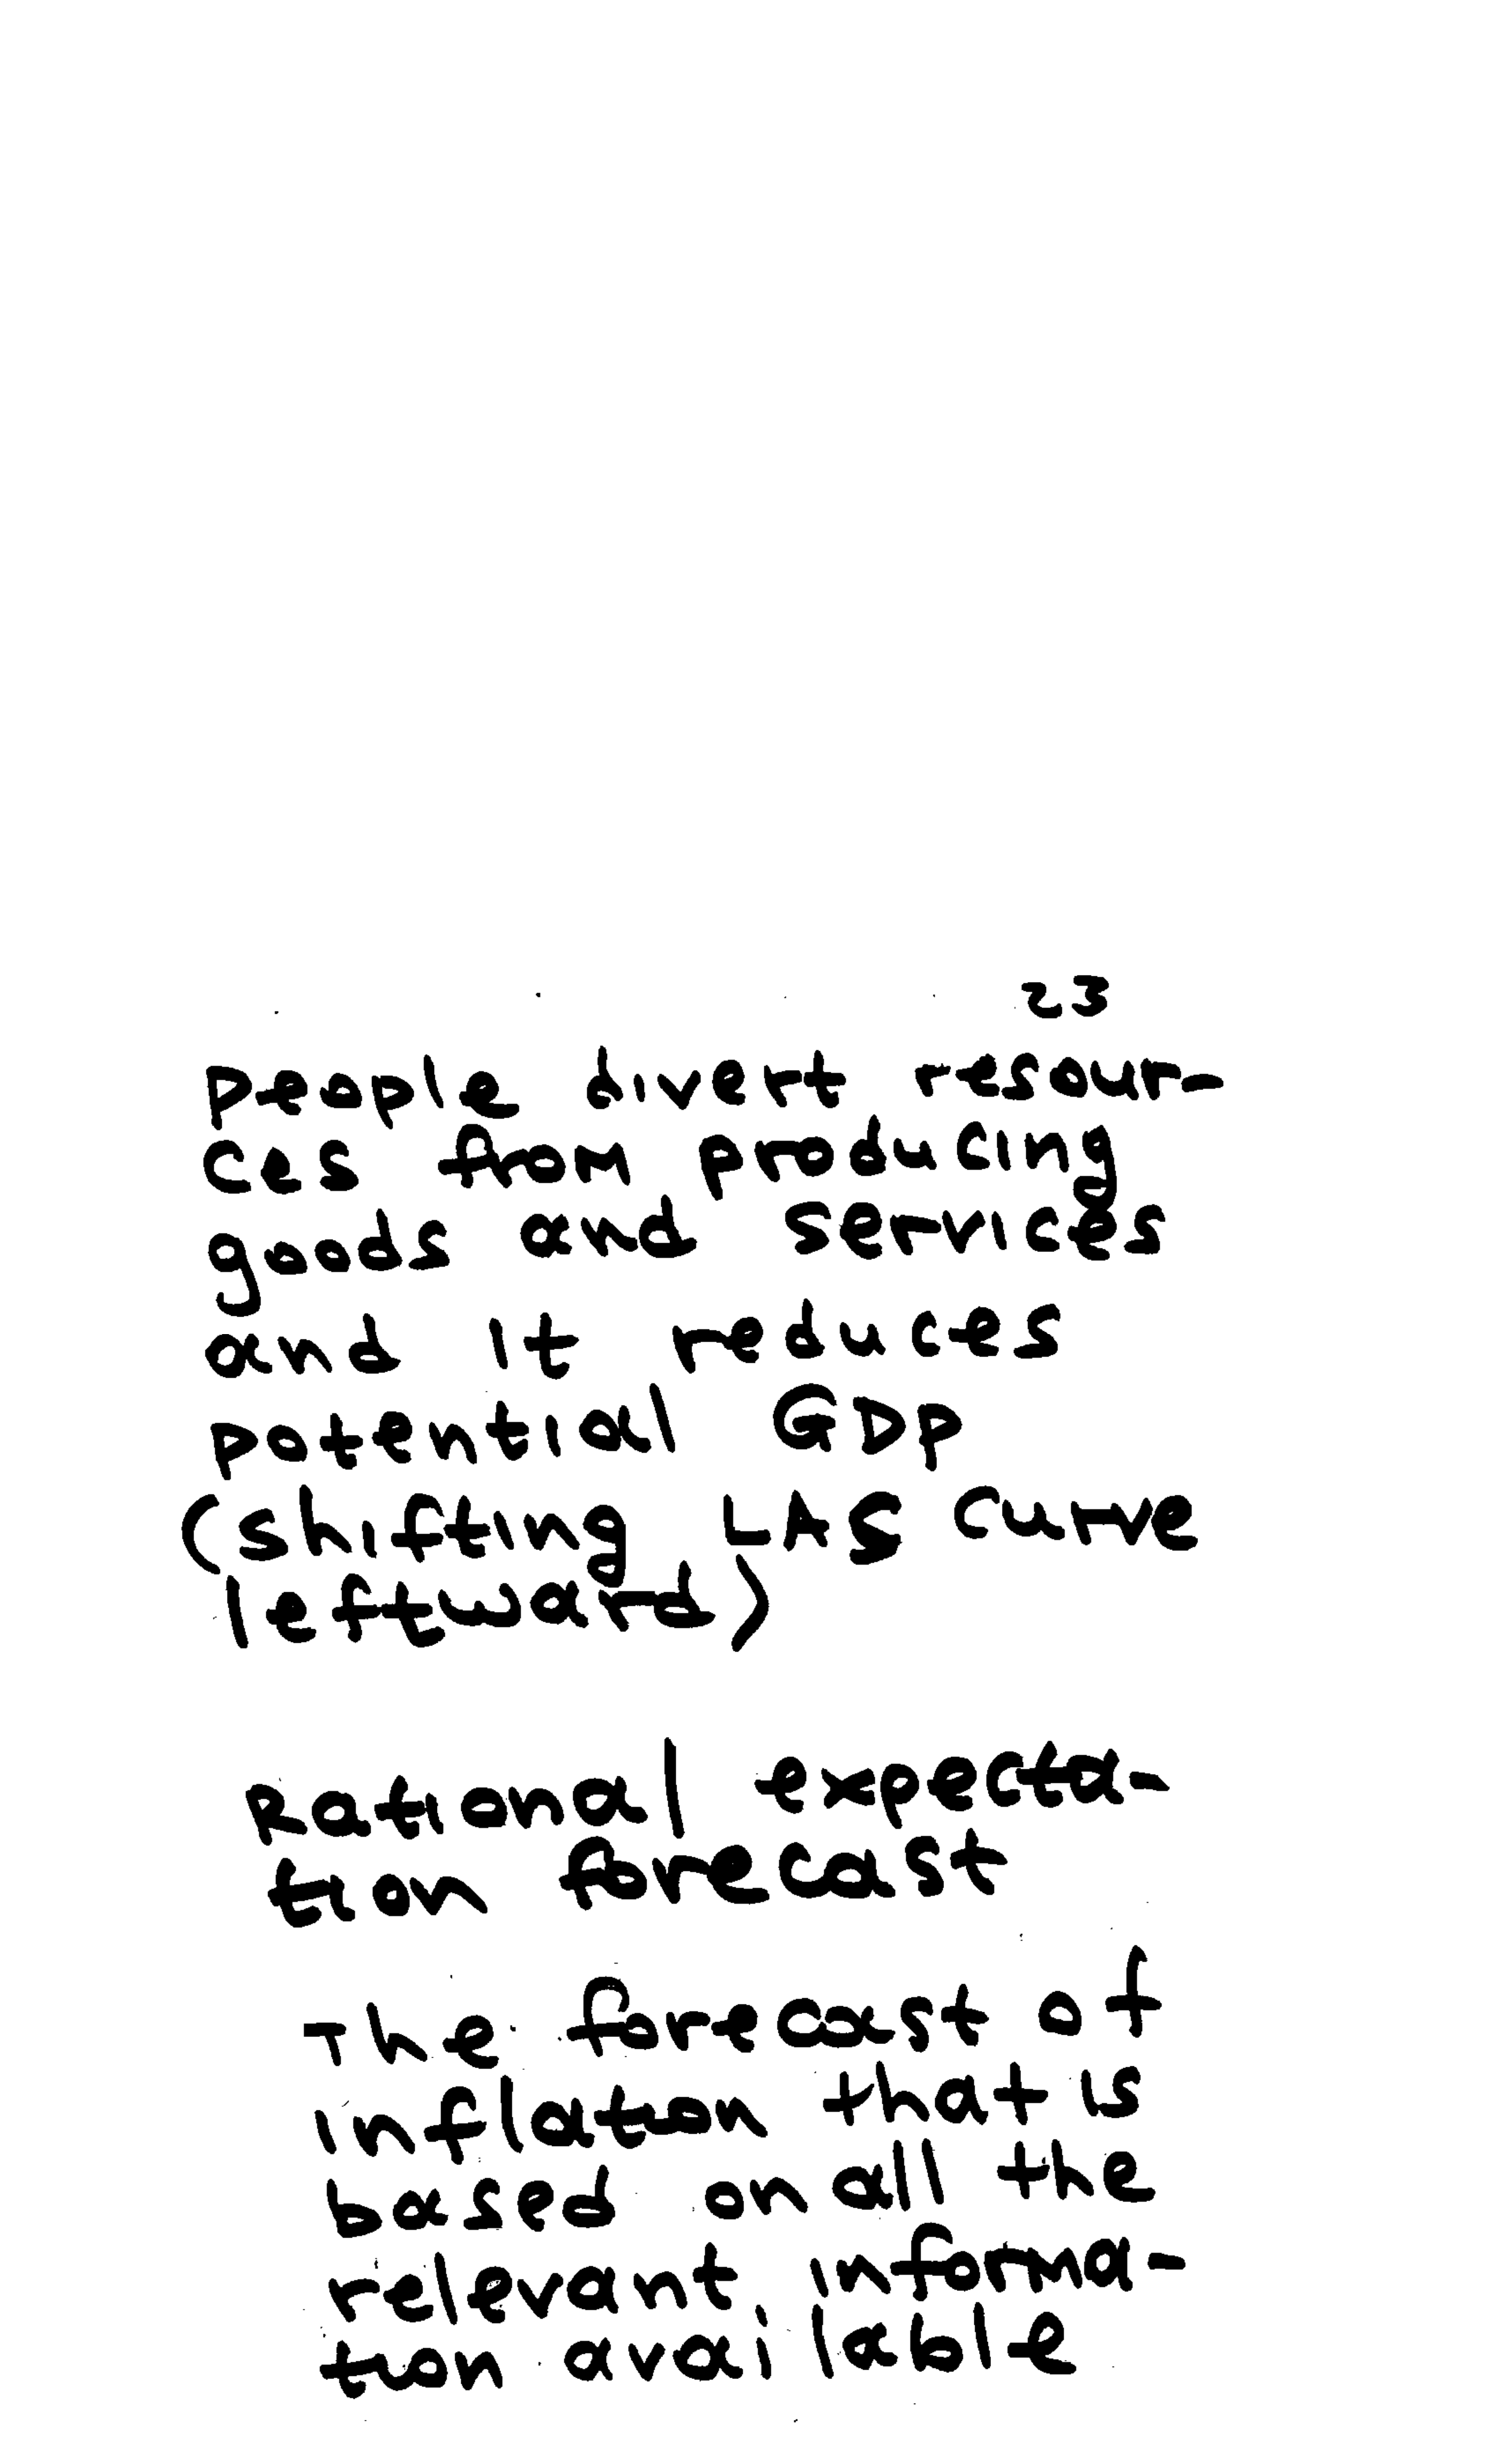 23
people divert resour-
ces from producing
goods and services
and it reduces
potential GDP
(shifting LAS curve
leftward)
Rational expecta-
tion forecast
The forecast of
inflation that is
based on all the
relevant informa-
tion available